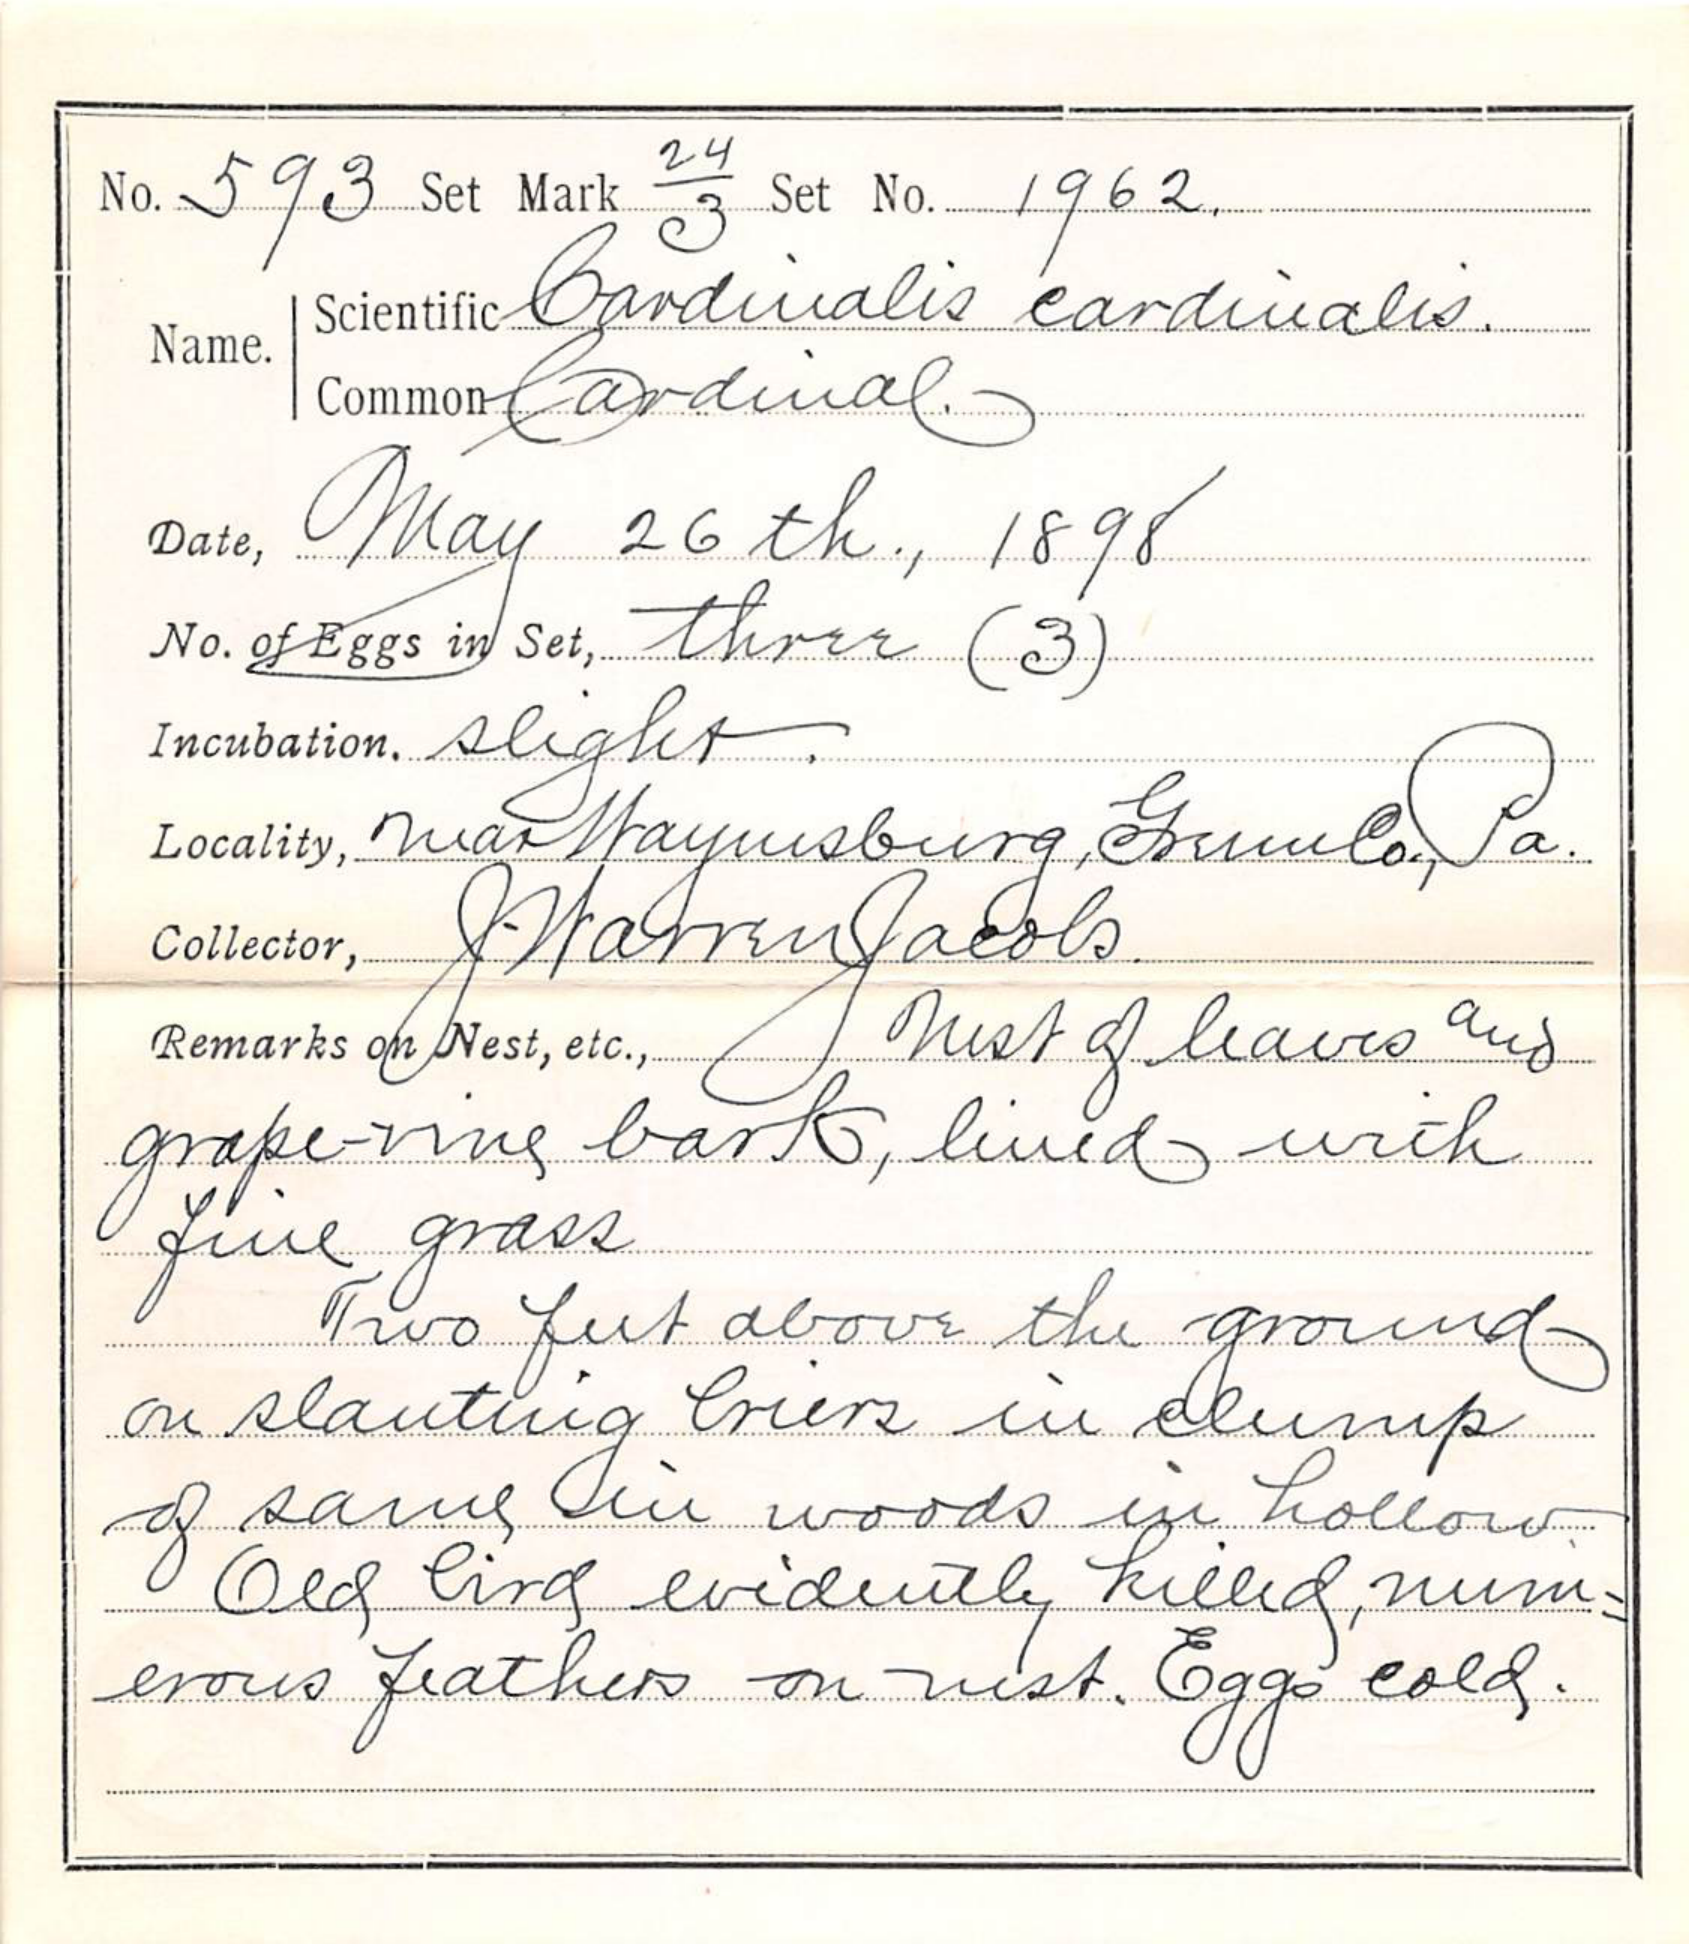 No. 593 Set Mark 24/3 Set No. 1962.
Name.
Scientific Cardinalis cardinalis.
Common Cardinal.
Date, May 26th., 1898
No. of Eggs in Set, three (3)
Incubation. slight.
Locality, near Waynesburg, Greene Co., Pa.
Collector, J. Warren Jacobs.
Remarks on Nest, etc., Nest of leaves and
grape-vine bark, lined with
fine grass
Two feet above the ground
on slanting briers in clump
of same, in woods in hollow.
Old bird evidently killed, num=
erous feathers on nest. Eggs cold.